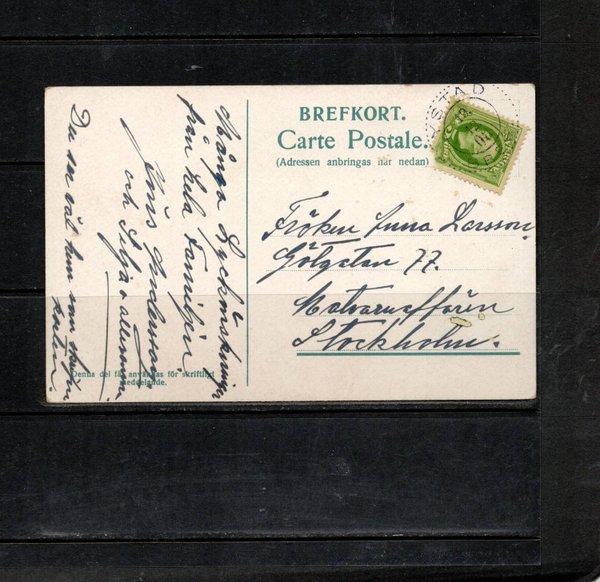 BREFKORT.
Carte Postale.
(Adressen anbringas här nedan)
YSTAD
Fröken Anna Larsson
Götgatan 77.
Matvaruaffären
Stockholm.
Många Lyckönskningar
från hela familjen
Jöns Andersson
och Silja
Du ser väl hvem som skrifvit
korten.
Denna del får användas för skriftligt
meddelande.